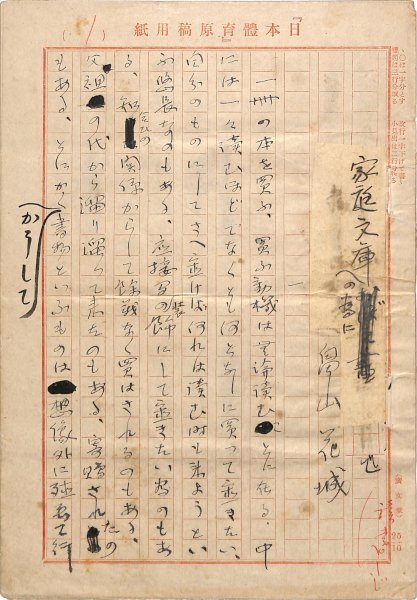 『日本體育』原稿用紙
家庭文庫
への為に
畠山花城
一
一冊の本を買ふ、買ふ動機は無論読むことに在る。中
には一々読むほどでなくとも何となしに買つて置きたい、
自分のものにしてさへ置けば何れは読む時も来ようとい
ふ気長なのもある。応接間の飾にして置きたい為のもあ
る。知合ひの関係からして餘戦なく買はされるのもある。
父祖の代から溜り溜つて来たのもある、寄贈されたの
もある。とにかく書物といふものは想像外に殖えて行
かうして
25×10